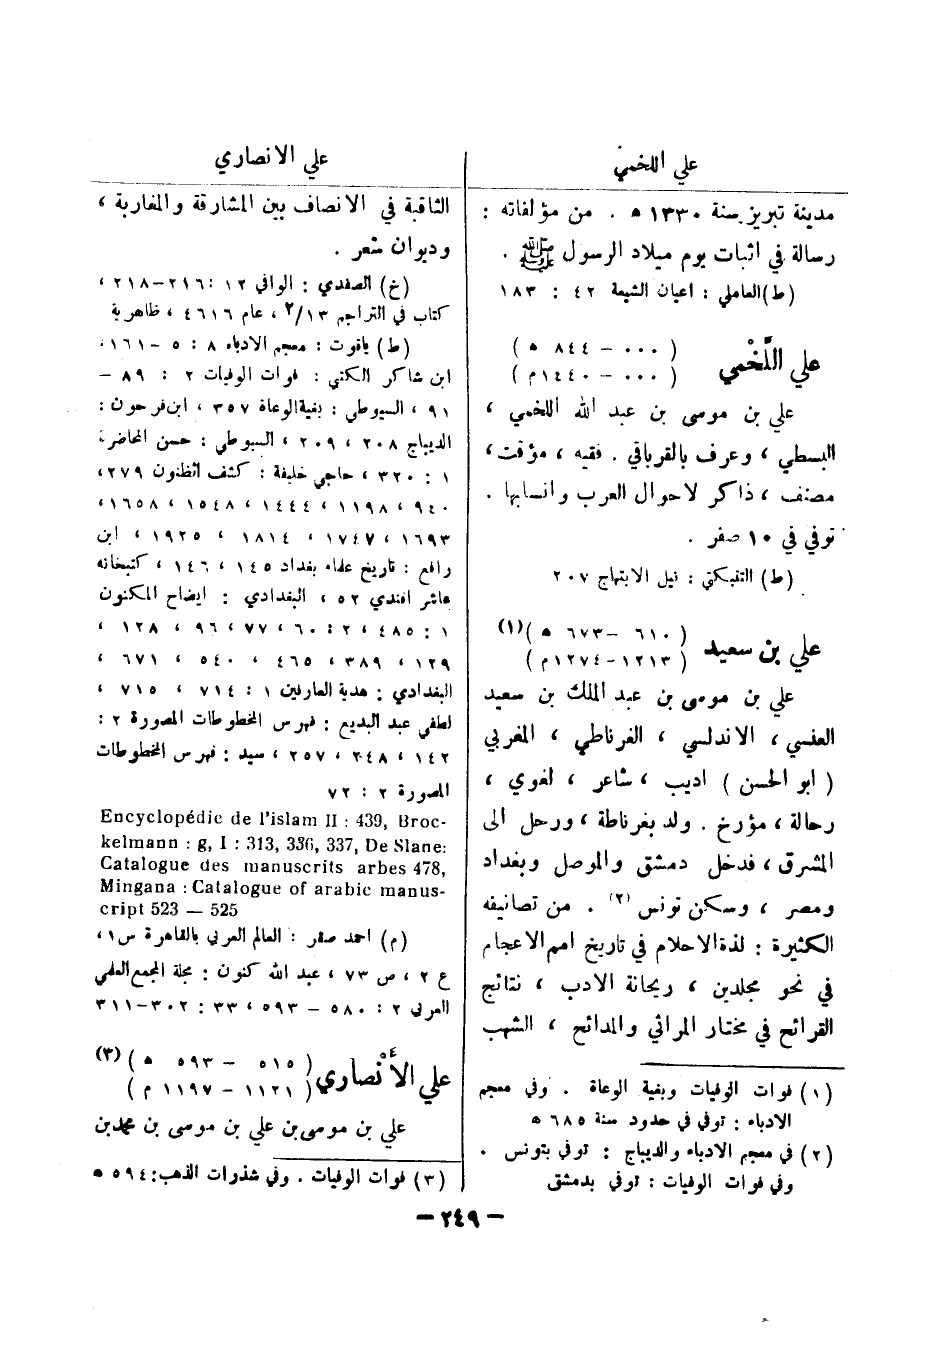 علي اللخمي
مدينة تبريز سنة ١٣٣٠ ه . من مؤلفاته :
رسالة في اثبات يوم ميلاد الرسول ﷺ .
(ط) العاملي : اعيان الشيعة ٤٢ : ١٨٣
علي اللَّخْمي
( ٠٠٠ – ٨٤٤ ه )
( ٠٠٠ – ١٤٤٠ م )
علي بن موسى بن عبد الله اللخمي ،
البسطي ، وعرف بالقرباقي . فقيه ، مؤقت ،
مصنف ، ذاكر لاحوال العرب وانسابها .
توفي في ١٠ صفر .
(ط) التنبكتي : نيل الابتهاج ٢٠٧
علي بن سعيد
( ٦١٠ – ٦٧٣ ه ) (١)
( ١٢١٣ – ١٢٧٤ م )
علي بن موسى بن عبد الملك بن سعيد
العنسي ، الاندلسي ، الغرناطي ، المغربي
( ابو الحسن ) اديب ، شاعر ، لغوي ،
رحالة ، مؤرخ . ولد بغرناطة ، ورحل الى
المشرق ، فدخل دمشق والموصل وبغداد
ومصر ، وسكن تونس (٢) . من تصانيفه
الكثيرة : لذة الاحلام في تاريخ امم الاعجام
في نحو مجلدين ، ريحانة الادب ، نتائج
القرائح في مختار المراثي والمدائح ، الشهب
(١) فوات الوفيات وبغية الوعاة . وفي معجم
الادباء : توفي في حدود سنة ٦٨٥ ه
(٢) في معجم الادباء والديباج : توفي بتونس .
وفي فوات الوفيات : توفي بدمشق
علي الانصاري
الثاقبة في الانصاف بين المشارقة والمغاربة ،
وديوان شعر .
(خ) الصفدي : الوافي ١٢ : ٢١٦–٢١٨ ،
كتاب في التراجم ٢/١٣ ، عام ٤٦١٦ ، ظاهرية
(ط) ياقوت : معجم الادباء ٨ : ٥ – ١٦١٠
ابن شاكر الكتبي : فوات الوفيات ٢ : ٨٩ –
٩١ ، السيوطي : بغية الوعاة ٣٥٧ ، ابن فرحون :
الديباج ٢٠٨ ، ٢٠٩ ، السيوطي : حسن المحاضرة
١ : ٣٢٠ ، حاجي خليفة : كشف الظنون ٢٧٩ ،
٩٤٠ ، ١١٩٨ ، ١٤٤٤ ، ١٥٤٨ ، ١٦٥٨ ،
١٦٩٣ ، ١٧٤٧ ، ١٨١٤ ، ١٩٢٥ ، ابن
رافع : تاريخ علماء بغداد ١٤٥ ، ١٤٦ ، كتبخانه
عاشر افندي ٥٢ ، البغدادي : ايضاح المكنون
١ : ٤٨٥ ، ٢ : ٦٠ ، ٧٧ ، ٩٦ ، ١٢٨ ،
١٢٩ ، ٣٨٩ ، ٤٦٥ ، ٥٤٠ ، ٦٧١ ،
البغدادي : هدية العارفين ١ : ٧١٤ ، ٧١٥ ،
لطفي عبد البديع : فهرس المخطوطات المصورة ٢ :
١٤٢ ، ٢٤٨ ، ٢٥٧ ، سيد : فهرس المخطوطات
المصورة ٢ : ٧٢
Encyclopédie de l'islam II : 439, Broc-
kelmann : g, I : 313, 336, 337, De Slane:
Catalogue des manuscrits arbes 478,
Mingana : Catalogue of arabic manus-
cript 523 — 525
(م) احمد صقر : العالم العربي بالقاهرة س١ ،
ع ٢ ، ص ٧٣ ، عبد الله كنون : مجلة المجمع العلمي
العربي ٢ : ٥٨٠ – ٥٩٣ ، ٣٣ : ٣٠٢–٣١١
علي الأَنْصاري
( ٥١٥ – ٥٩٣ ه ) (٣)
( ١١٢١ – ١١٩٧ م )
علي بن موسى بن علي بن موسى بن محمد بن
(٣) فوات الوفيات . وفي شذرات الذهب : ٥٩٤ ه
– ٢٤٩ –